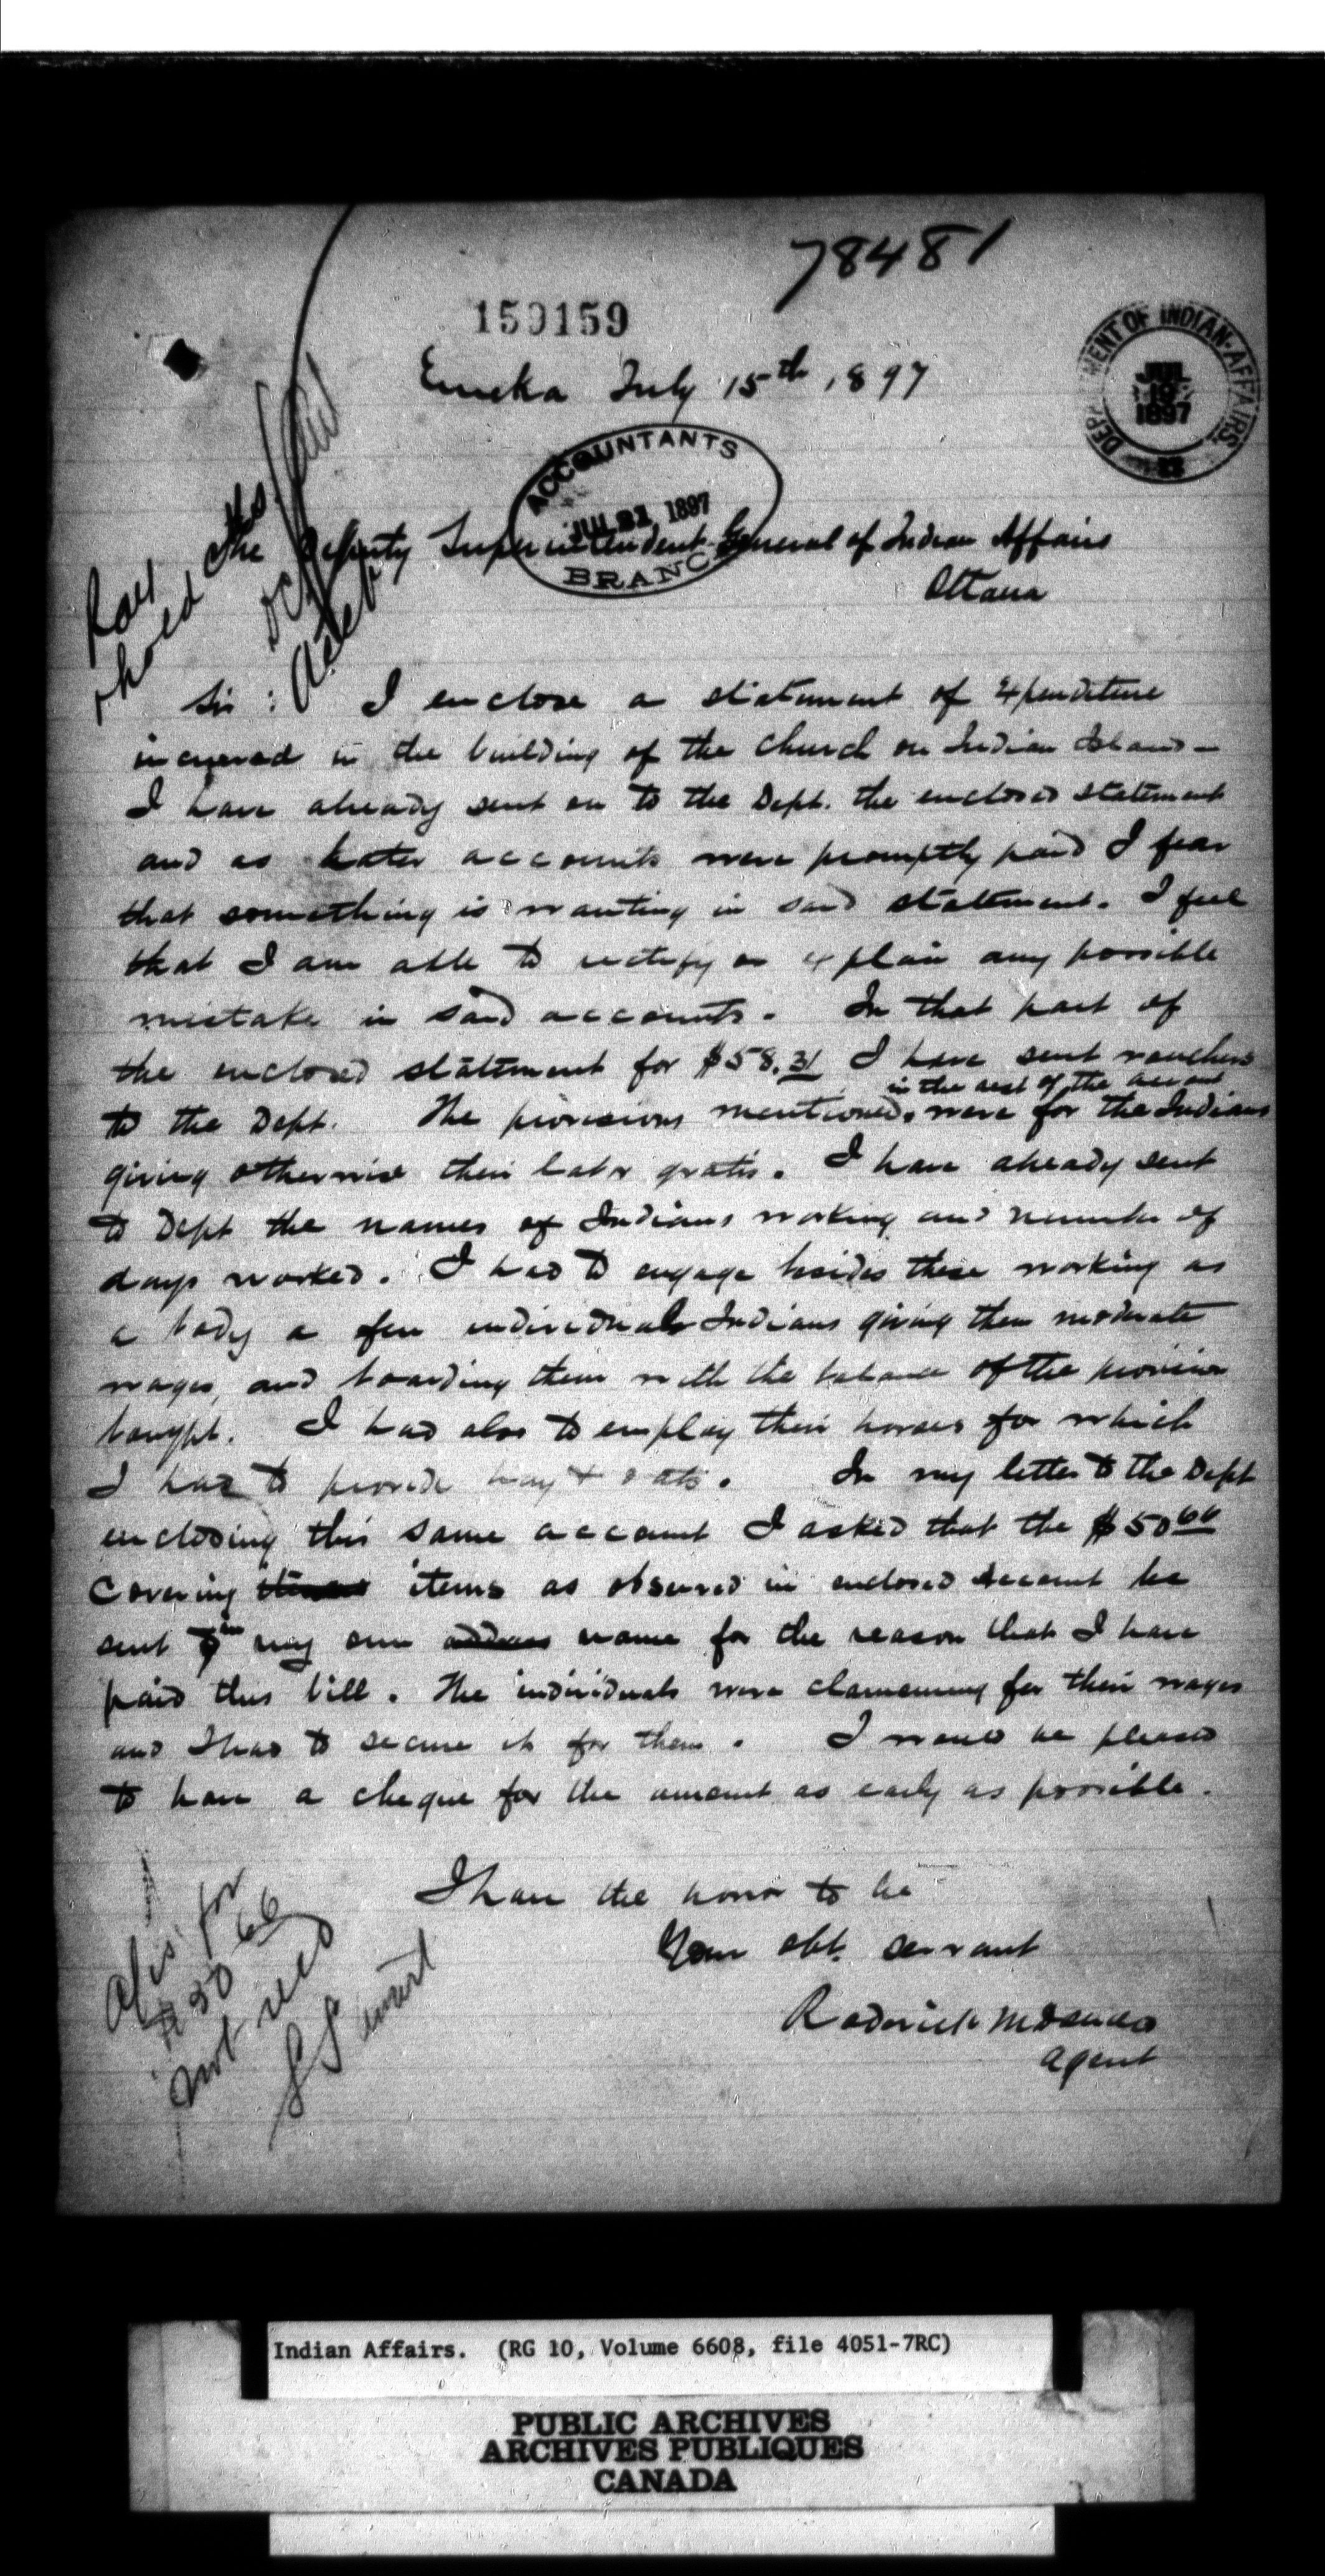 78481
150159
DEPARTMENT OF INDIAN AFFAIRS.
JUL
19
1897
Eureka July 15th, 1897
ACCOUNTANTS
JUL 21 1897
BRANCH
The Deputy Superintendent General of Indian Affairs
Ottawa
Sir: I enclose a statement of expenditure
incurred in the building of the church on Indian Island -
I have already sent on to the Dept. the enclosed statement
and as later accounts were promptly paid I fear
that something is wanting in said statement. I feel
that I am able to rectify or explain any possible
mistake in said accounts. In that part of
the enclosed statement for $58.31 I have sent vouchers
in the rest of the account
to the Dept. The provisions mentioned were for the Indians
giving otherwise their labor gratis. I have already sent
to Dept the names of Indians working and number of
days worked. I had to engage besides these working as
a body a few individual Indians giving them moderate
wages, and boarding them with the balance of the provisions
bought. I had also to employ their horses for which
I had to provide hay & oats. In my letter to the Dept
enclosing this same account I asked that the $50 66
covering items as observed in enclosed account be
sent in my own name for the reason that I have
paid this bill. The individuals were clamoring for their wages
and I had to secure it for them. I would be pleased
to have a cheque for the amount as early as possible.
I have the honor to be
Your obt. servant
Roderick McDonald
Agent
for
$50 66
not recd
Indian Affairs. (RG 10, Volume 6608, file 4051-7RC)
PUBLIC ARCHIVES
ARCHIVES PUBLIQUES
CANADA